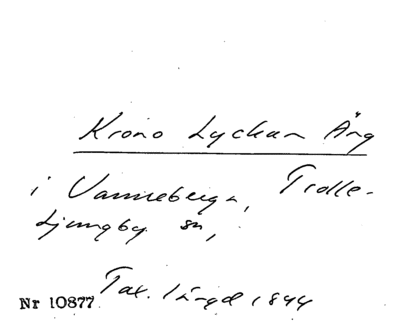 Krono Lyckan Äng
i Vanneberga, Trolle-
Ljungby sn,
Tax. längd 1844
Nr 10877